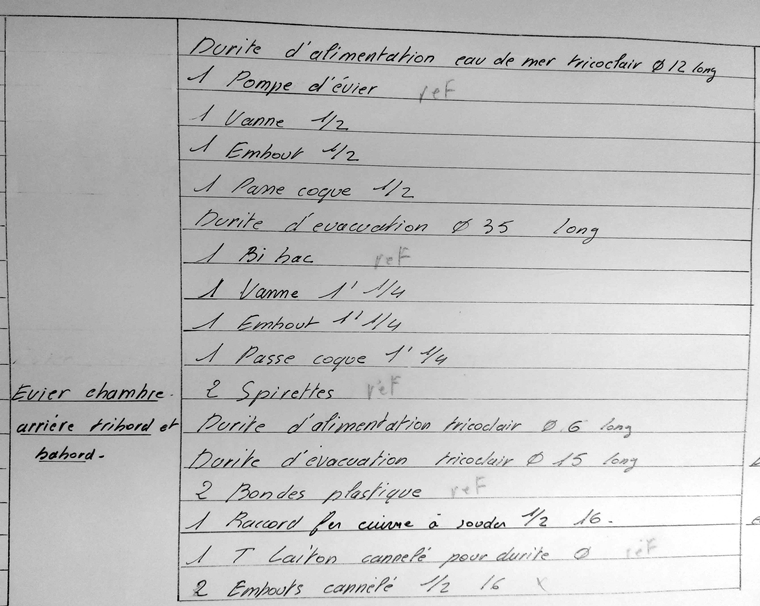 Durite d'alimentation eau de mer tricoclair Ø 12 long
1 Pompe d'évier réF
1 Vanne 1/2
1 Embout 1/2
1 Passe coque 1/2
Durite d'evacuation Ø 35 long
1 Bi bac réF
1 Vanne 1' 1/4
1 Embout 1' 1/4
1 Passe coque 1' 1/4
Evier chambre 2 Spirettes réF
arrière tribord et Durite d'alimentation tricoclair Ø 6 long
babord - Durite d'évacuation tricoclair Ø 15 long
2 Bondes plastique réF
1 Raccord cuivre à souder 1/2 16.
1 T Laiton cannelé pour durite Ø réF
2 Embouts cannelé 1/2 16 x